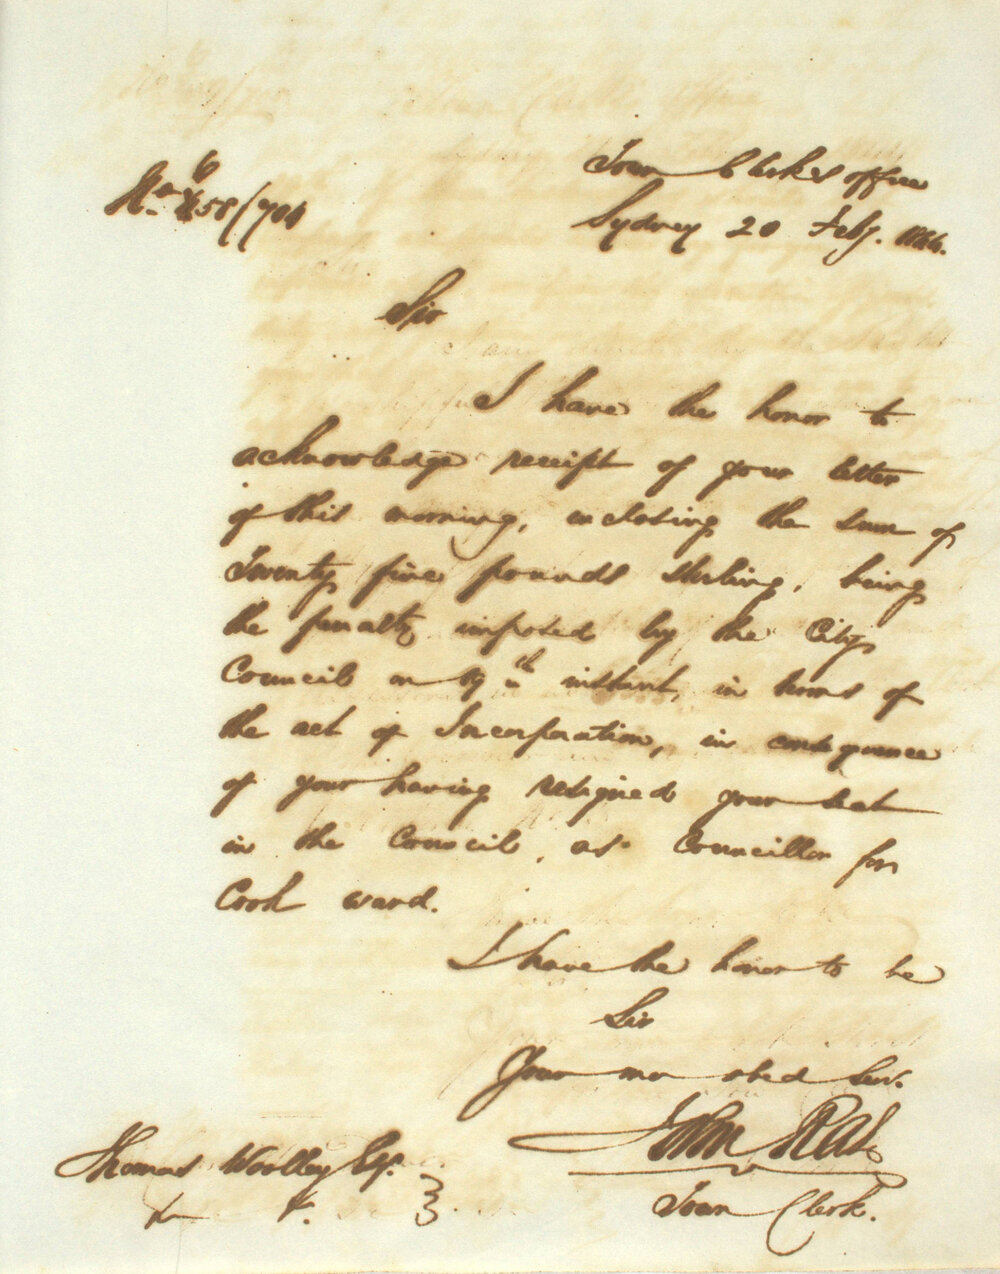 Town Clerk's office
No. 658/704
Sydney 20 Feby. 1866.
Sir
I have the honor to
acknowledge receipt of your letter
of this morning, inclosing the sum of
Twenty five pounds sterling, being
the penalty imposed by the City
Council on 19th instant, in terms of
the act of Incorporation, in consequence
of your having resigned your seat
in the Council, as Councillor for
Cook ward.
I have the honor to be
Sir
Your mo obed Serv.
John Rae
Town Clerk.
Thomas Woolley Esqr.